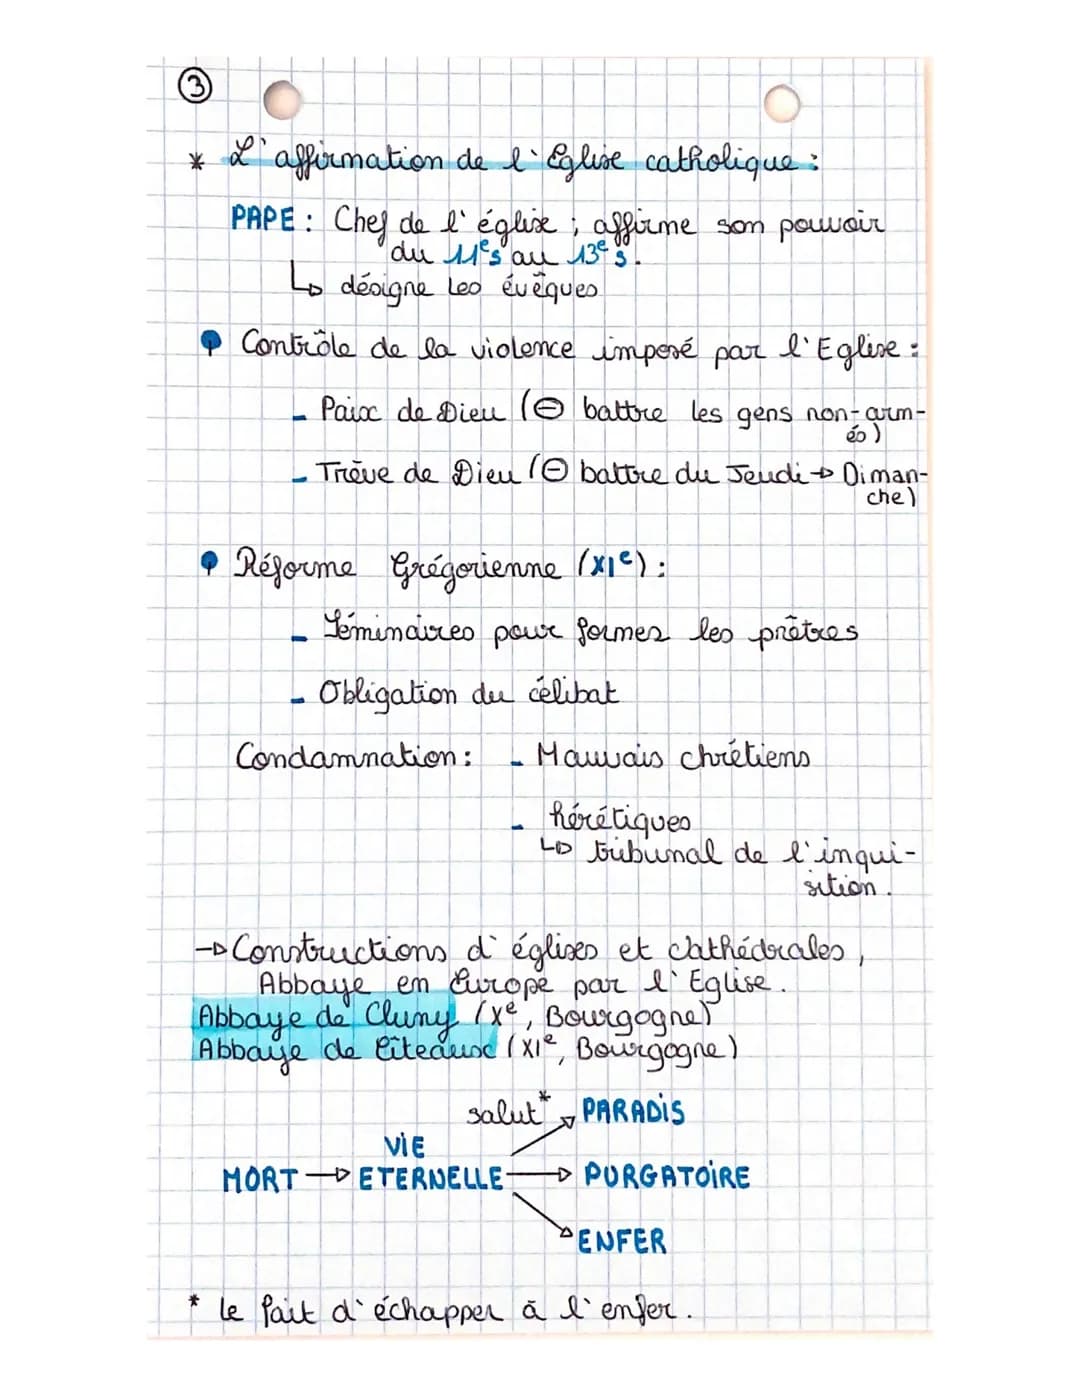 ③
* L'affirmation de l'Eglise catholique :
PAPE : Chef de l'église ; affirme son pouvoir
du 11es au 13e s.
↳ désigne les évêques
Contrôle de la violence imposé par l'Eglise :
- Paix de Dieu (⊖ battre les gens non-arm-
és)
- Trêve de Dieu (⊖ battre du Jeudi → Diman-
che)
Réforme Grégorienne (XIe) :
- Séminaires pour former les prêtres
- Obligation du célibat
Condamnation : - Mauvais chrétiens
- hérétiques
↳ tribunal de l'inqui-
sition.
→ Constructions d'églises et Cathédrales,
Abbaye en Europe par l'Eglise.
Abbaye de Cluny (Xe, Bourgogne)
Abbaye de Cîteaux (XIe, Bourgogne)
salut* PARADIS
VIE
MORT → ETERNELLE → PURGATOIRE
ENFER
* le fait d'échapper à l'enfer.